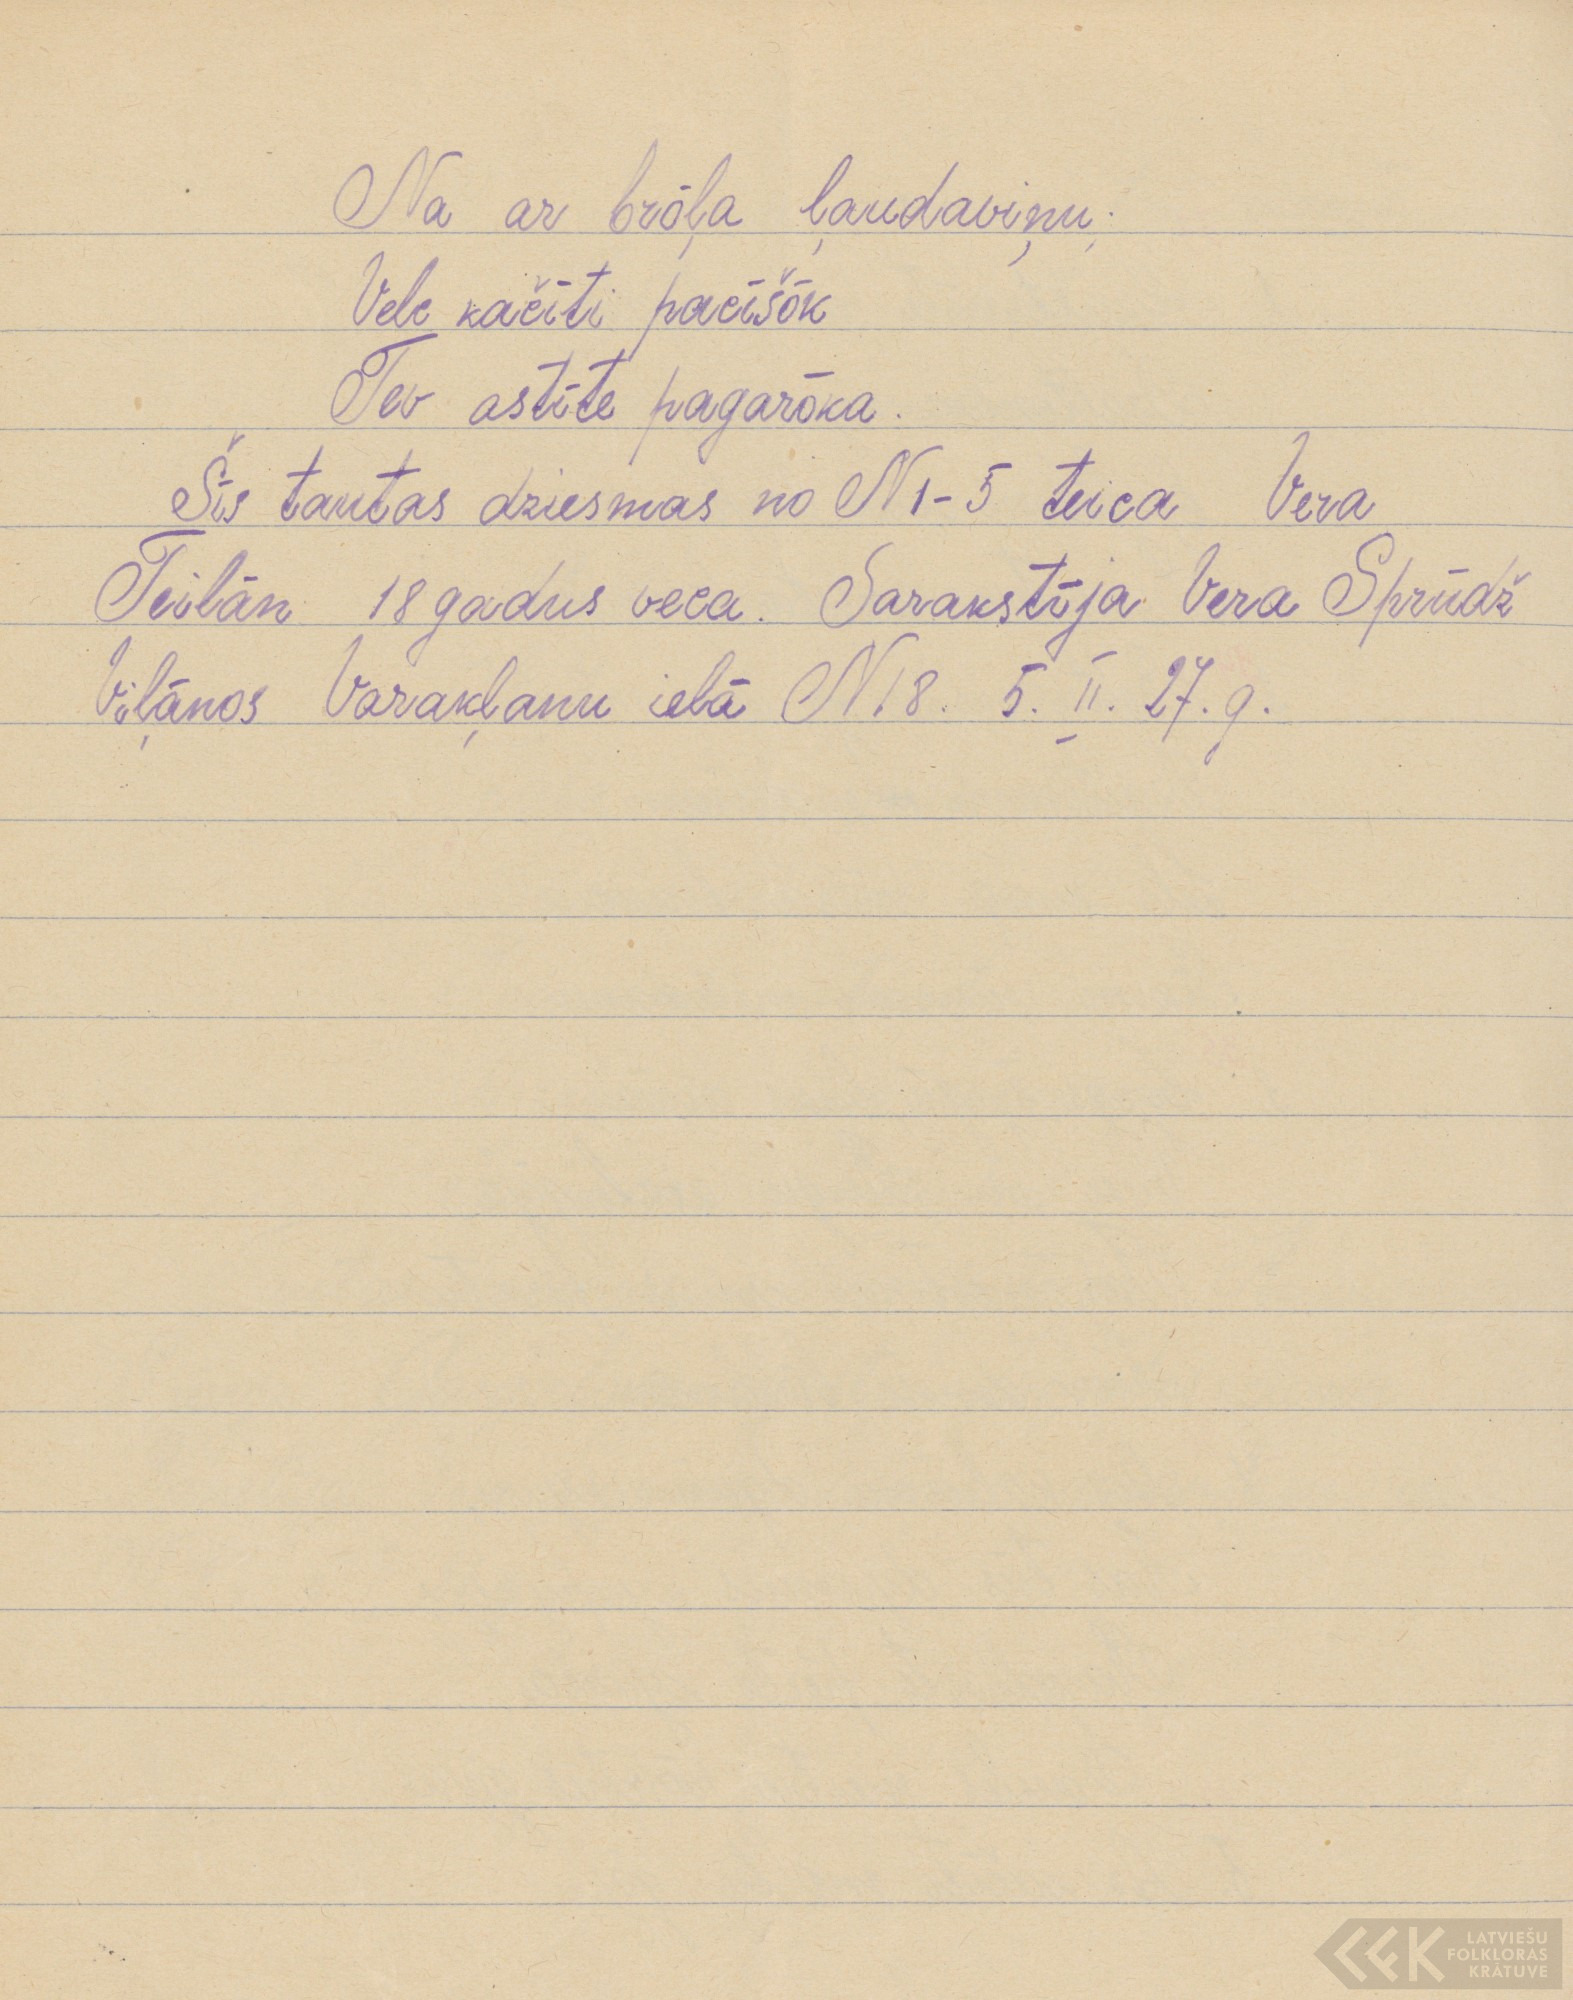 Na ar brōļa ļaudaviņu;
Vele kačīti pacīšōk
Tev astīte pagarōka.
Šīs tautas dziesmas no N 1-5 teica Vera
Teilān 18 gadus veca. Sarakstīja Vera Sprūdž
Viļānos Varakļanu ielā N 18. 5. II. 27. g.
LATVIEŠU
FOLKLORAS
KRĀTUVE